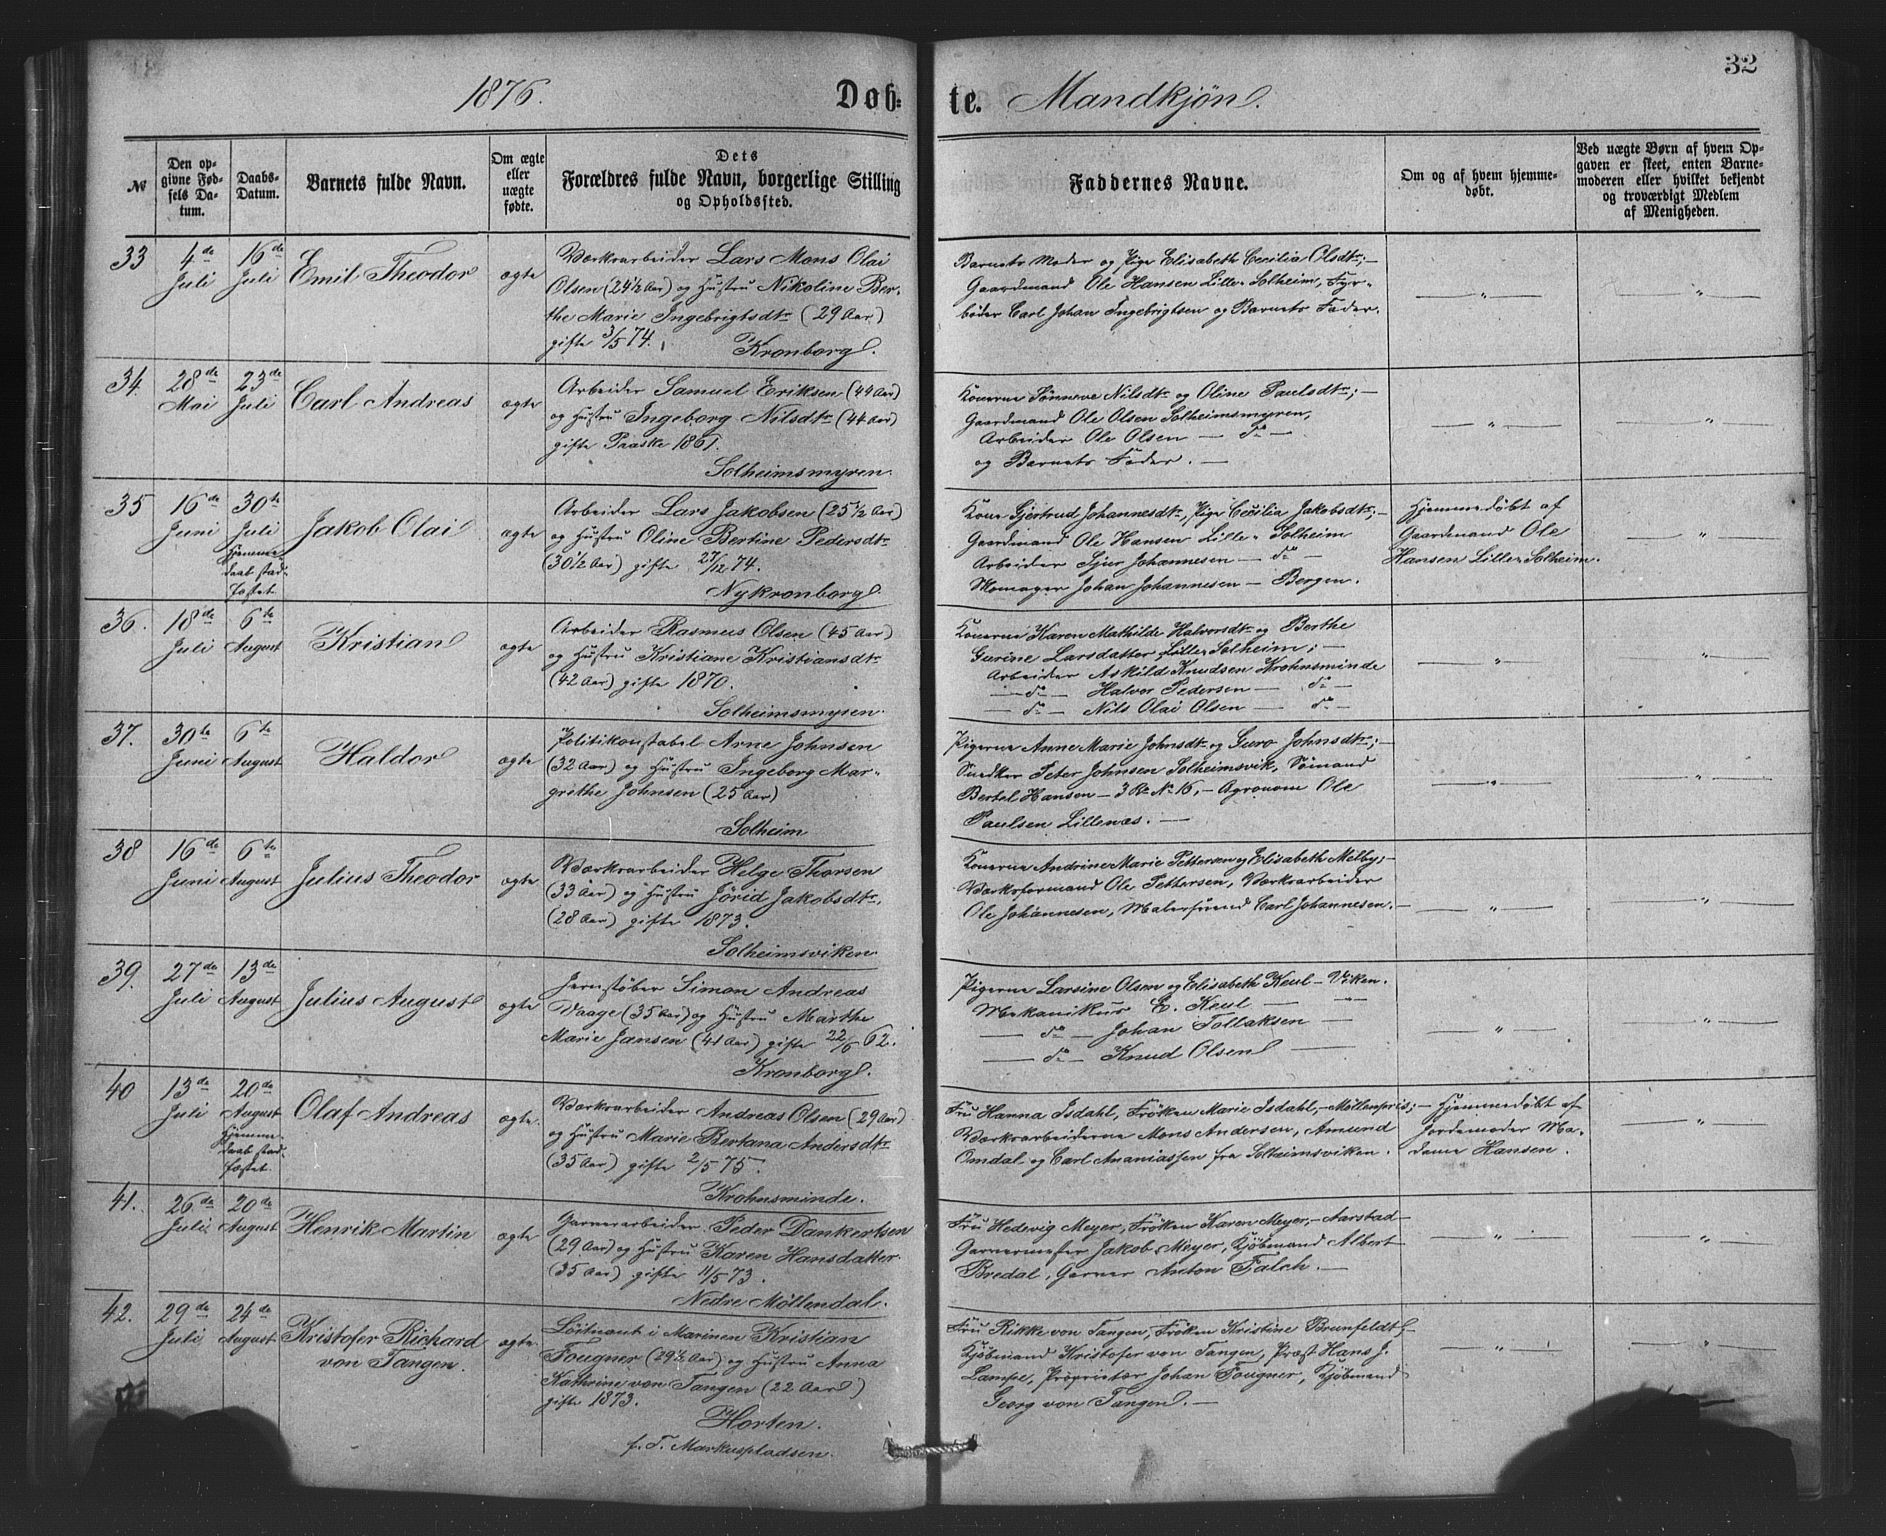 32
1876. Døb- te. Mandkjøn.
№
Den op-
givne Fød-
sels Da-
tum.
Daabs-
Datum.
Barnets fulde Navn.
Om ægte
eller
uægte
fødte.
Dets
Forældres fulde Navn, borgerlige Stilling
og Opholdssted.
Faddernes Navne.
Om og af hvem hjemme-
døbt.
Ved uægte Børn af hvem Op-
gaven er skeet, enten Barne-
moderen eller hvilket bekjendt
og troværdigt Medlem
af Menigheden.
33
4de
Juli
16de
Juli
Emil Theodor
ægte
Værksarbeider Lars Mons Olai
Olsen (24½ Aar) og Hustru Nikoline Ber-
the Marie Ingebrigtsdtr (29 Aar)
gifte 3/5 74.
Kronborg.
Barnets Moder og Pige Elisabeth Cecilia Olsdtr;—
Gaardmand Ole Hansen Lille-Solheim, Fyr-
bøder Carl Johan Ingebrigtsen og Barnets Fader.
— " —
— " —
34.
28de
Mai
23de
Juli
Carl Andreas
ægte
Arbeider Samuel Eriksen (44 Aar)
og Hustru Ingeborg Nilsdtr (44 Aar)
gifte Paaske 1861.
Solheimsmyren.
Konerne Sønneve Nilsdtr og Oline Paulsdtr;—
Gaardmand Ole Olsen Solheimsmyren,
Arbeider Ole Olsen — do —
og Barnets Fader. —
— " —
— " —
35
16de
Juni
30te
Juli
Hjemme-
daab stad-
fæstet
Jakob Olai
ægte
Arbeider Lars Jakobsen (25½ Aar)
og Hustru Oline Bertine Pedersdtr
(30½ Aar) gifte 27/12 74.
Nykronborg.
Kone Gjertrud Johannesdtr, Pige Cecilia Jakobsdtr;—
Gaardmand Ole Hansen Lille-Solheim
Arbeider Sjur Johannesen — do —
Skomager Johan Johannesen — Bergen.
Hjemmedøbt af
Gaardmand Ole
Hansen Lille-Solheim.
— " —
36.
18de
Juli
6te
August
Kristian
ægte
Arbeider Rasmus Olsen (45 Aar)
og Hustru Kristiane Kristiansdtr
(42 Aar) gifte 1870.
Solheimsmyren.
Konerne Karen Mathilde Halvorsdtr og Berthe
Gurine Larsdatter Lille-Solheim; —
Arbeider Askild Knudsen Krohnsminde
— do — Halvor Pedersen — do —
— do — Nils Olai Olsen — do —
— " —
— " —
37.
30te
Juni
6te
August
Haldor
ægte
Politikonstabel Arne Johnsen
(32 Aar) og Hustru Ingeborg Mar-
grethe Johnsen (25 Aar)
Solheim
Pigerne Anne Marie Johnsdtr og Guro Johnsdtr; —
Snedker Peter Johnsen Solheimsvik, Sømand
Bertel Hansen — 3 Rd. No 16, — Agronom Ole
Paulsen Lillenæs. —
— " —
— " —
38
16de
Juni
6te
August
Julius Theodor
ægte
Værksarbeider Helge Thorsen
(33 Aar) og Hustru Jorid Jakobsdtr.
(28 Aar) gifte 1873.
Solheimsviken
Konerne Andrine Marie Pettersen og Elisabeth Melby;—
Værksformand Ole Pettersen, Værksarbeider
Ole Johannesen, Malersvend Carl Johannesen. —
— " —
— " —
39.
27de
Juli
13de
August
Julius August
ægte
Jernstøber Simon Andreas
Vaage (35 Aar) og Hustru Marthe
Marie Jansen (41 Aar) gifte 22/6 62.
Kronborg.
Pigerne Larsine Olsen og Elisabeth Keul — Viken.
Mekanikus E. Keul — " —
— do — Johan Tollaksen —
— do — Knud Olsen —
— " —
— " —
40
13de
Juli
20de
August
Hjemme-
daab stad-
fæstet.
Olaf Andreas
ægte.
Værksarbeider Andreas Olsen (29 Aar)
og Hustru Marie Bertana Andersdtr
(35 Aar) gifte 2/5 75.
Krohnsminde.
Fru Hanna Isdahl, Frøken Marie Isdahl, — Møllenpris; —
Værksarbeiderne Mons Andersen, Amund
Omdal og Carl Ananiassen fra Solheimsviken.
Hjemmedøbt af
Jordemoder Ma-
dame Hansen.
— " —
41.
26de
Juli
20de
August
Henrik Martin
ægte
Garverarbeider Peder Dankertsen
(29 Aar) og Hustru Karen Hansdatter
(35 Aar) gifte 11/5 73.
Nedre Møllendal.
Fru Hedevig Meyer, Frøken Karen Meyer, — Aarstad —
Garvermester Jakob Meyer, Kjøbmand Albert
Bredal, Garver Anton Falch. —
— " —
— " —
42.
29de
Juli
24de
August
Kristofer Richard
von Tangen.
ægte
Løitnant i Marinen Kristian
Fougner (29½ Aar) og Hustru Anna
Kathrine von Tangen (22 Aar)
gifte 1873.
Horten.
f. T. Markuspladsen.
Fru Rikke von Tangen, Frøken Kristine Brunfeldt, —
Kjøbmand Kristofer von Tangen, Præst Hans J.
Lampe, Proprietær Johan Fougner, Kjøbmand
Georg von Tangen. —
— " —
— " —